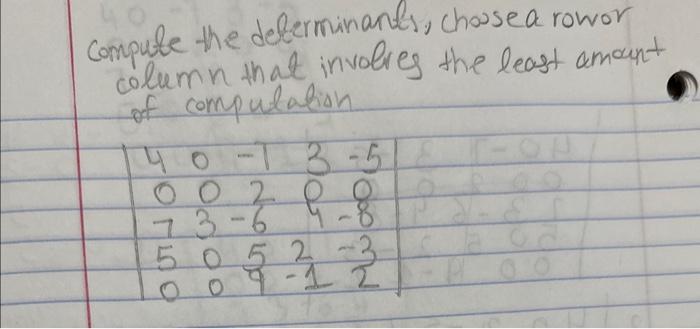 Compute the determinants, choose a row or
column that involves the least amount
of computation
4 0 -7 3 -5
0 0 2 0 0
7 3 -6 4 -8
5 0 5 2 -3
0 0 9 -1 2